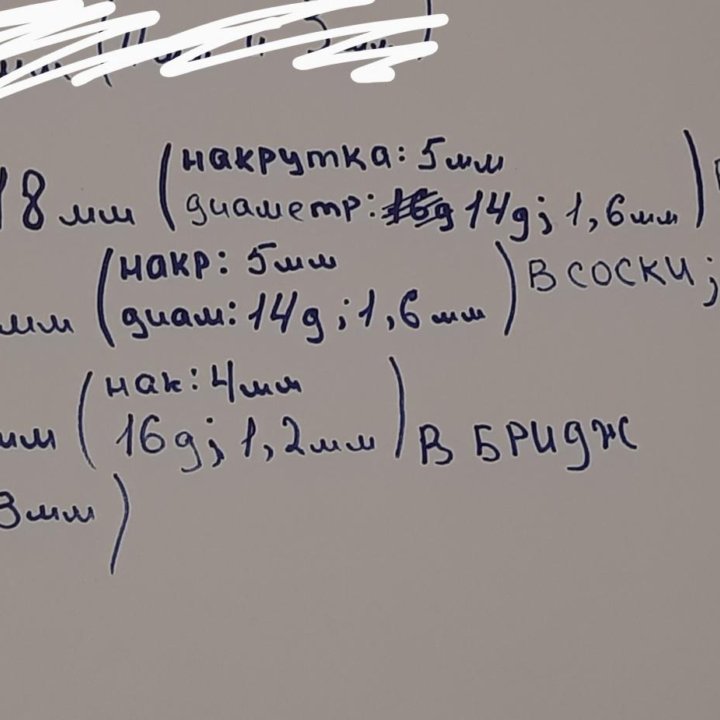 18 мм (накрутка: 5мм
диаметр: 14g; 1,6мм)
(накр: 5мм
мм диам: 14g; 1,6мм) в соски;
(нак: 4мм
мм 16g; 1,2мм) в бридж
3мм)